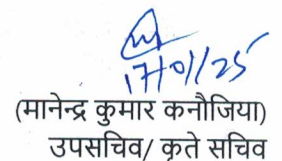 17/01/25
(मानेन्द्र कुमार कनौजिया)
उपसचिव/ कृते सचिव